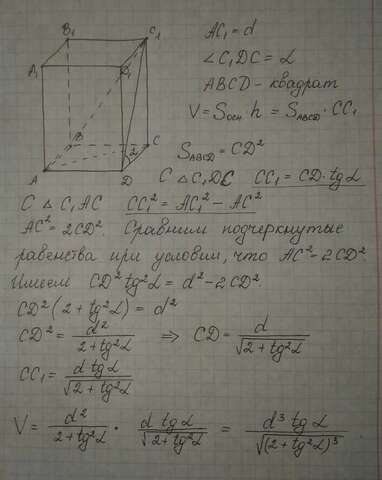 B₁ C₁
A₁ D₁
B C
α
A D
AC₁ = d
∠C₁DC = α
ABCD – квадрат
V = Sосн h = S_ABCD · CC₁
S_ABCD = CD²
С △ C₁DC CC₁ = CD · tg α
С △ C₁AC CC₁² = AC₁² – AC²
AC² = 2CD². Сравним подчеркнутые
равенства при условии, что AC² = 2CD².
Имеем CD² tg²α = d² – 2CD².
CD² (2 + tg²α) = d²
CD² = d² / (2 + tg²α) ⇒ CD = d / √(2 + tg²α)
CC₁ = d tg α / √(2 + tg²α)
V = d² / (2 + tg²α) · d tg α / √(2 + tg²α) = d³ tg α / √((2 + tg²α)³)